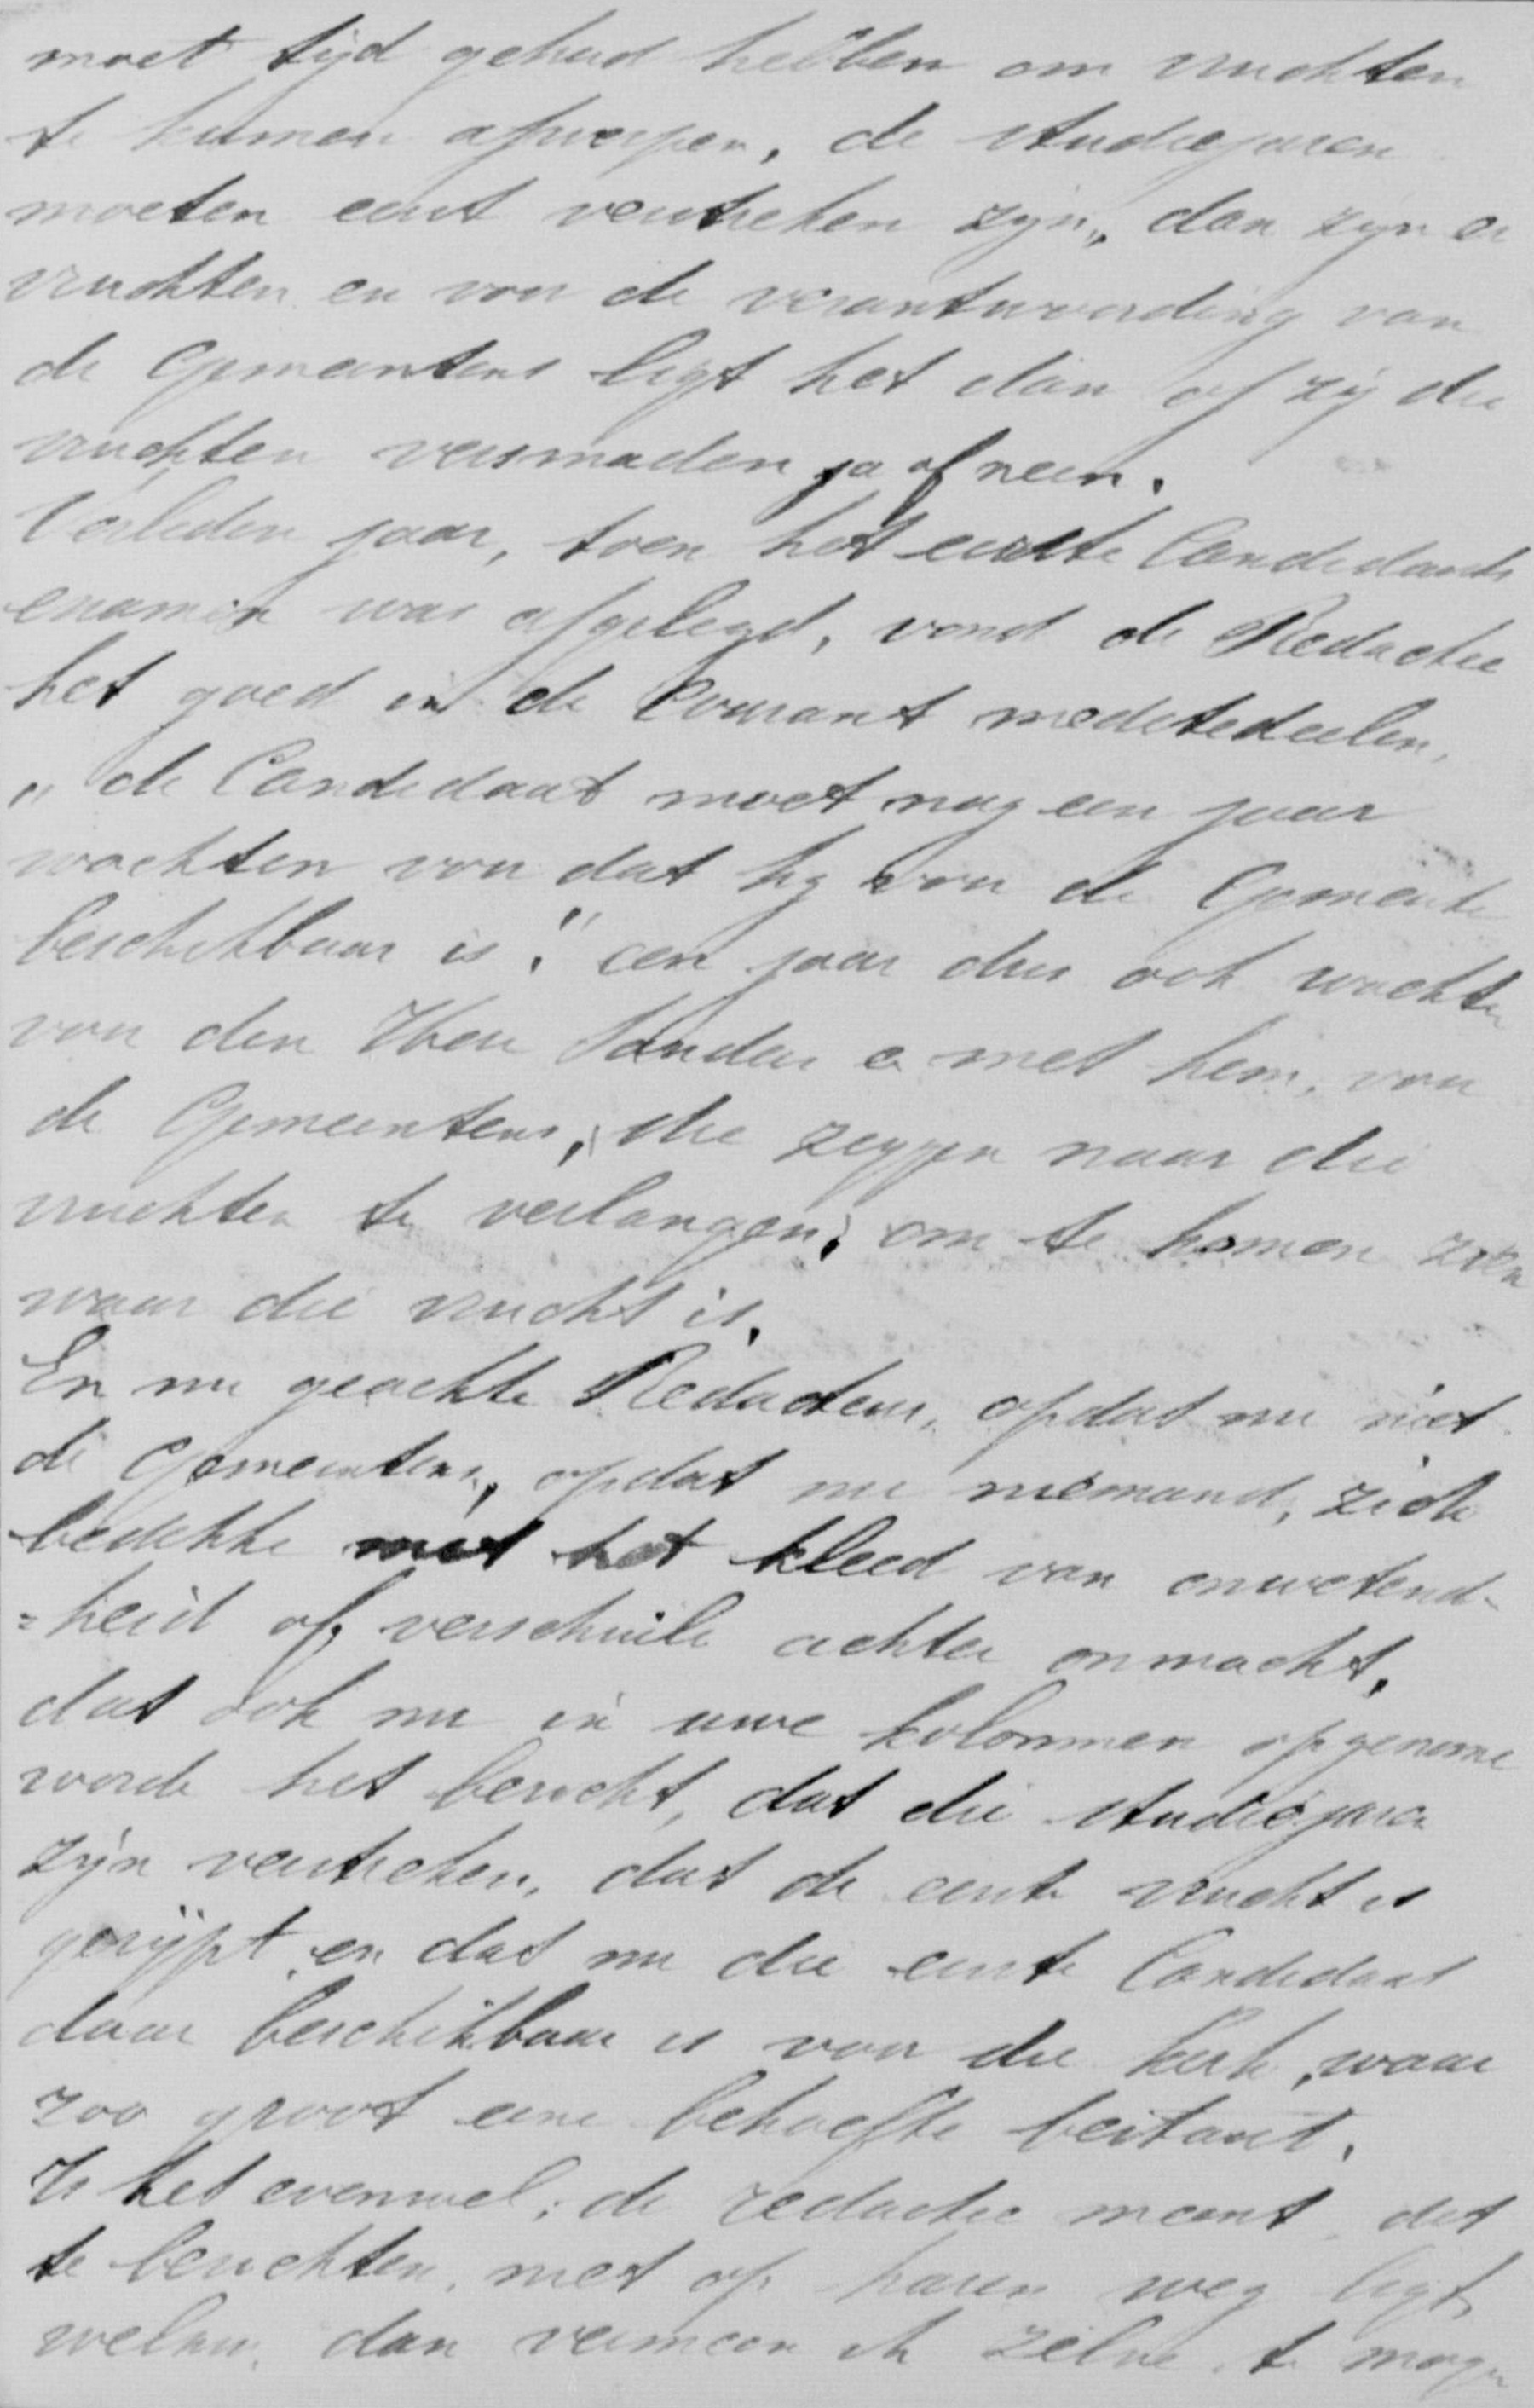 moet tijd gehad hebben om vruchten
te kunnen afwerpen, de studiejaren
moeten eerst verstreken zijn, dan zijn er
vruchten en voor de verantwoording van
de Gemeentens ligt het dan of zij die
vruchten versmaden ja of neen.
Verleden jaar, toen het eerste Candidaats
examen was afgelegd, vond de Redactie
het goed in de Courant medetedeelen,
"de Candidaat moet nog een jaar
wachten voor dat hij voor de Gemeente
beschikbaar is." een jaar dus ook wachten
voor den Heer Sanders en met hem, voor
de Gemeentens, die zeggen naar die
vruchten te verlangen, om te komen zien
waar die vrucht is.
En nu geachte Redacteur, opdat nu niet
de Gemeentens, opdat nu niemand, zich
bedekke met het kleed van onwetend-
=heid of verschuile achter onmacht,
dat ook nu in uwe kolommen opgenomen
worde het bericht, dat die studiejaren
zijn verstreken, dat de eerste vrucht is
gerijpt en dat nu die eerste Candidaat
daar beschikbaar is voor die Kerk, waar
zoo groot eene behoefte bestaat.
Is het evenwel, de redactie meent, dit
te berichten, niet op haren weg ligt,
welnu, dan vermeen ik zelve te mogen